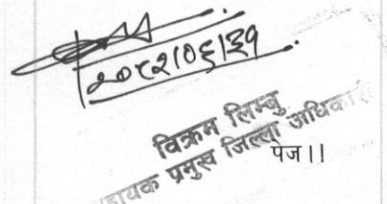 २०८२।०६।३१
विक्रम लिम्बु
हायक प्रमुख जिल्ला अधिकारी
पेज।।